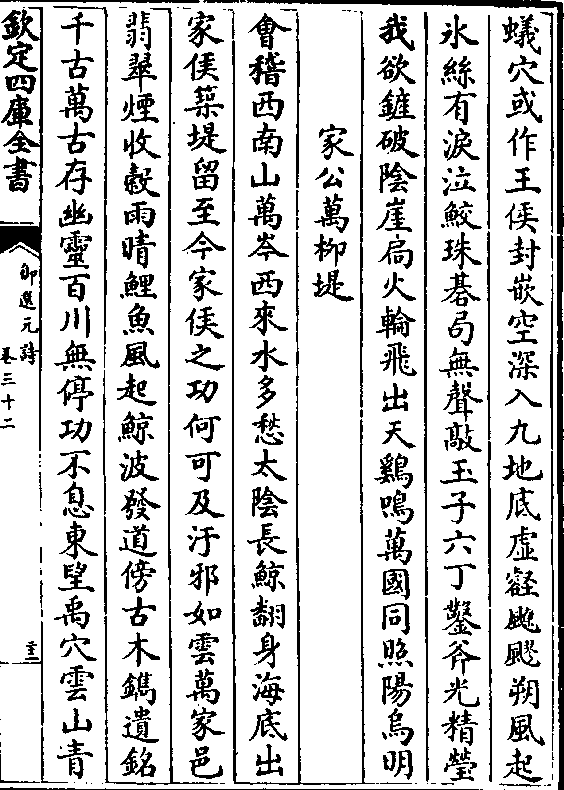 蟻穴或作王侯封嵌空深入九地底虛壑颼飀朔風起
氷絲有淚泣鮫珠碁局無聲敲玉子六丁鑿斧光精瑩
我欲鏟破陰崖扃火輪飛出天鷄鳴萬國同照陽烏明
家公萬柳堤
會稽西南山萬岑西來水多愁太陰長鯨翻身海底出
家侯築堤留至今家侯之功何可及汙邪如雲萬家邑
翡翠煙收縠雨晴鯉魚風起鯨波發道傍古木鐫遺銘
千古萬古存幽靈百川無停功不息東望禹穴雲山青
欽定四庫全書
御選元詩
卷三十二